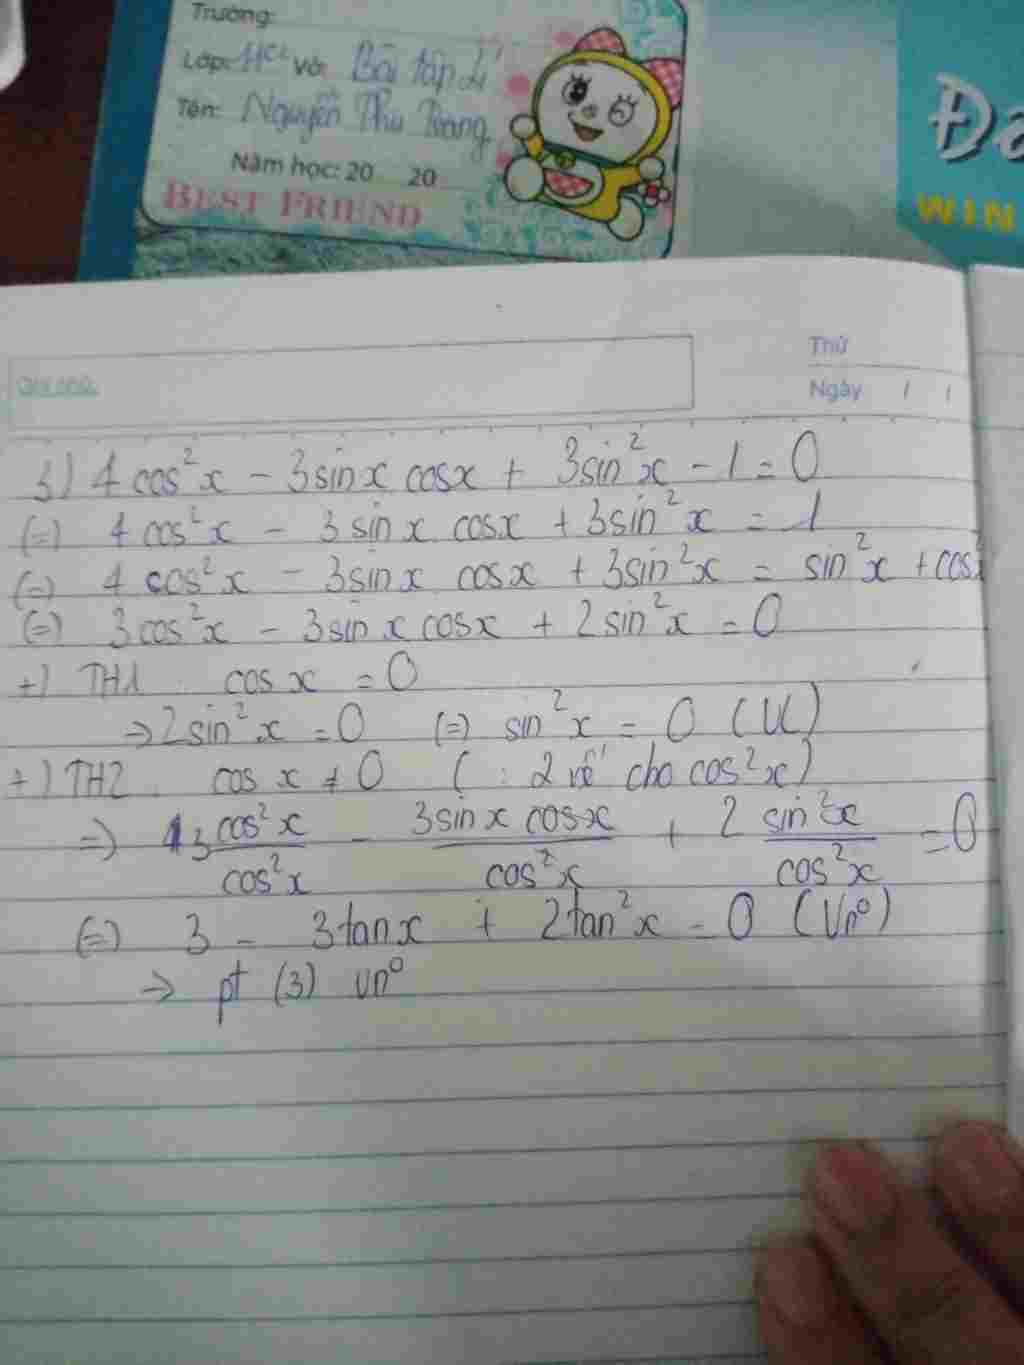 Trường:
Lớp: 11C2 Vở: Bài tập Lí
Tên: Nguyễn Thu
Năm học: 20 20
BEST FRIEND
Đa
WIN
Thứ
Ngày / /
Ghi chú:
3) 4cos²x - 3sinx cosx + 3sin²x - 1 = 0
(=) 4cos²x - 3sinx cosx + 3sin²x = 1
(=) 4cos²x - 3sinx cosx + 3sin²x = sin²x + cos²
(=) 3cos²x - 3sinx cosx + 2sin²x = 0
+) TH1 cosx = 0
→ 2sin²x = 0 (=) sin²x = 0 (VL)
+) TH2. cosx ≠ 0 (: 2 vế cho cos²x)
=) 3 cos²x/cos²x - 3sinx cosx/cos²x + 2 sin²x/cos²x = 0
(=) 3 - 3tanx + 2tan²x = 0 (Vn⁰)
→ pt (3) vn⁰